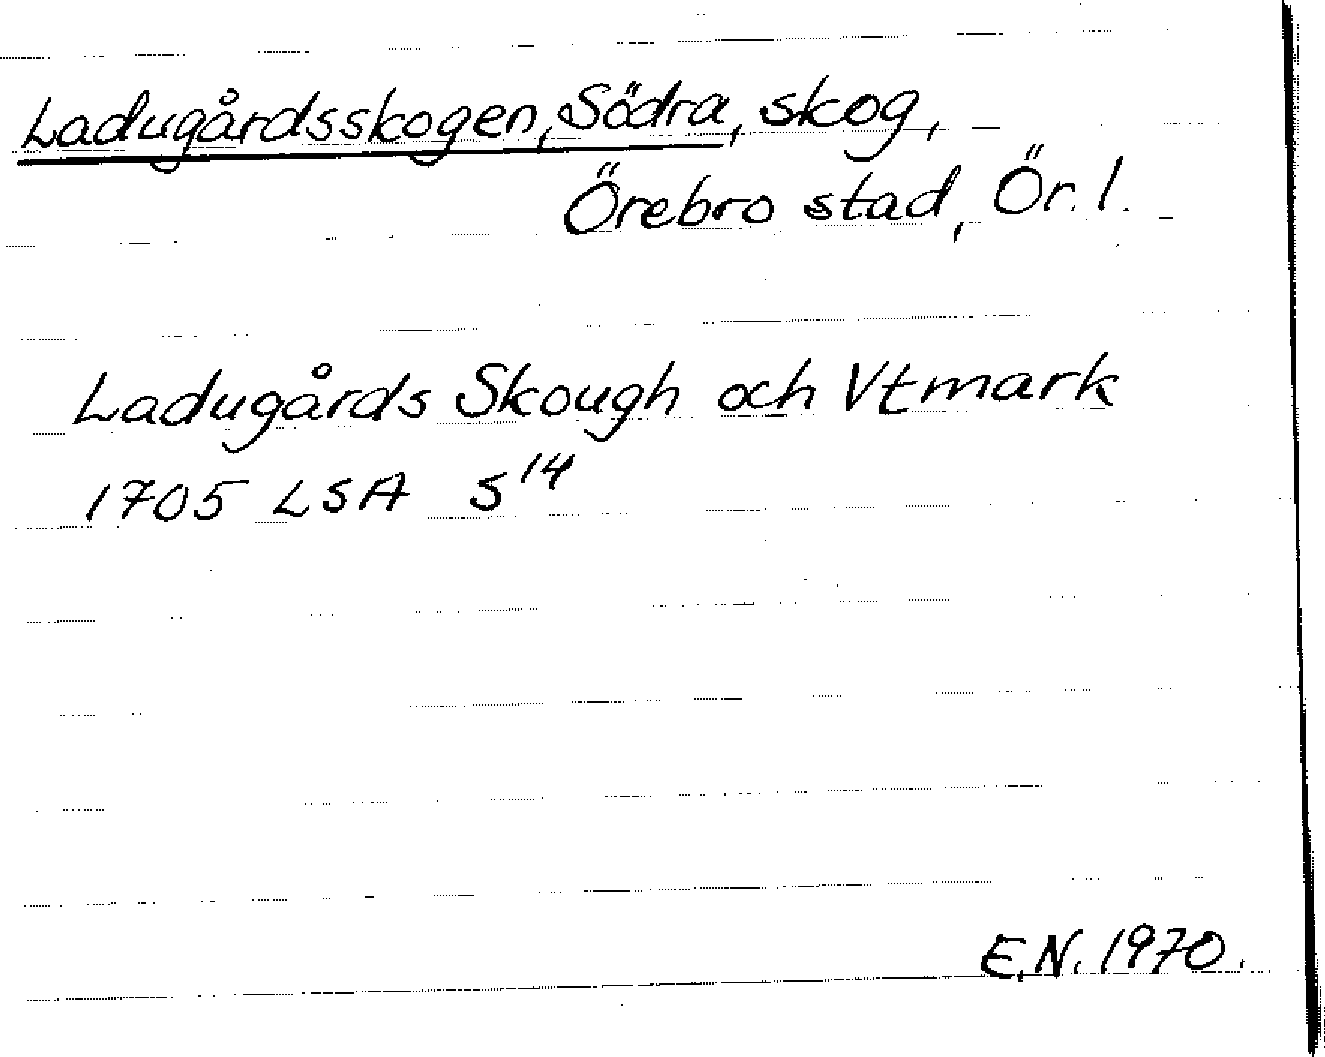 Ladugårdsskogen, Södra, skog,
Örebro stad, Ör. l.
Ladugårds Skough och Vtmark
1705 LSA S¹⁴
E.N. 1970.